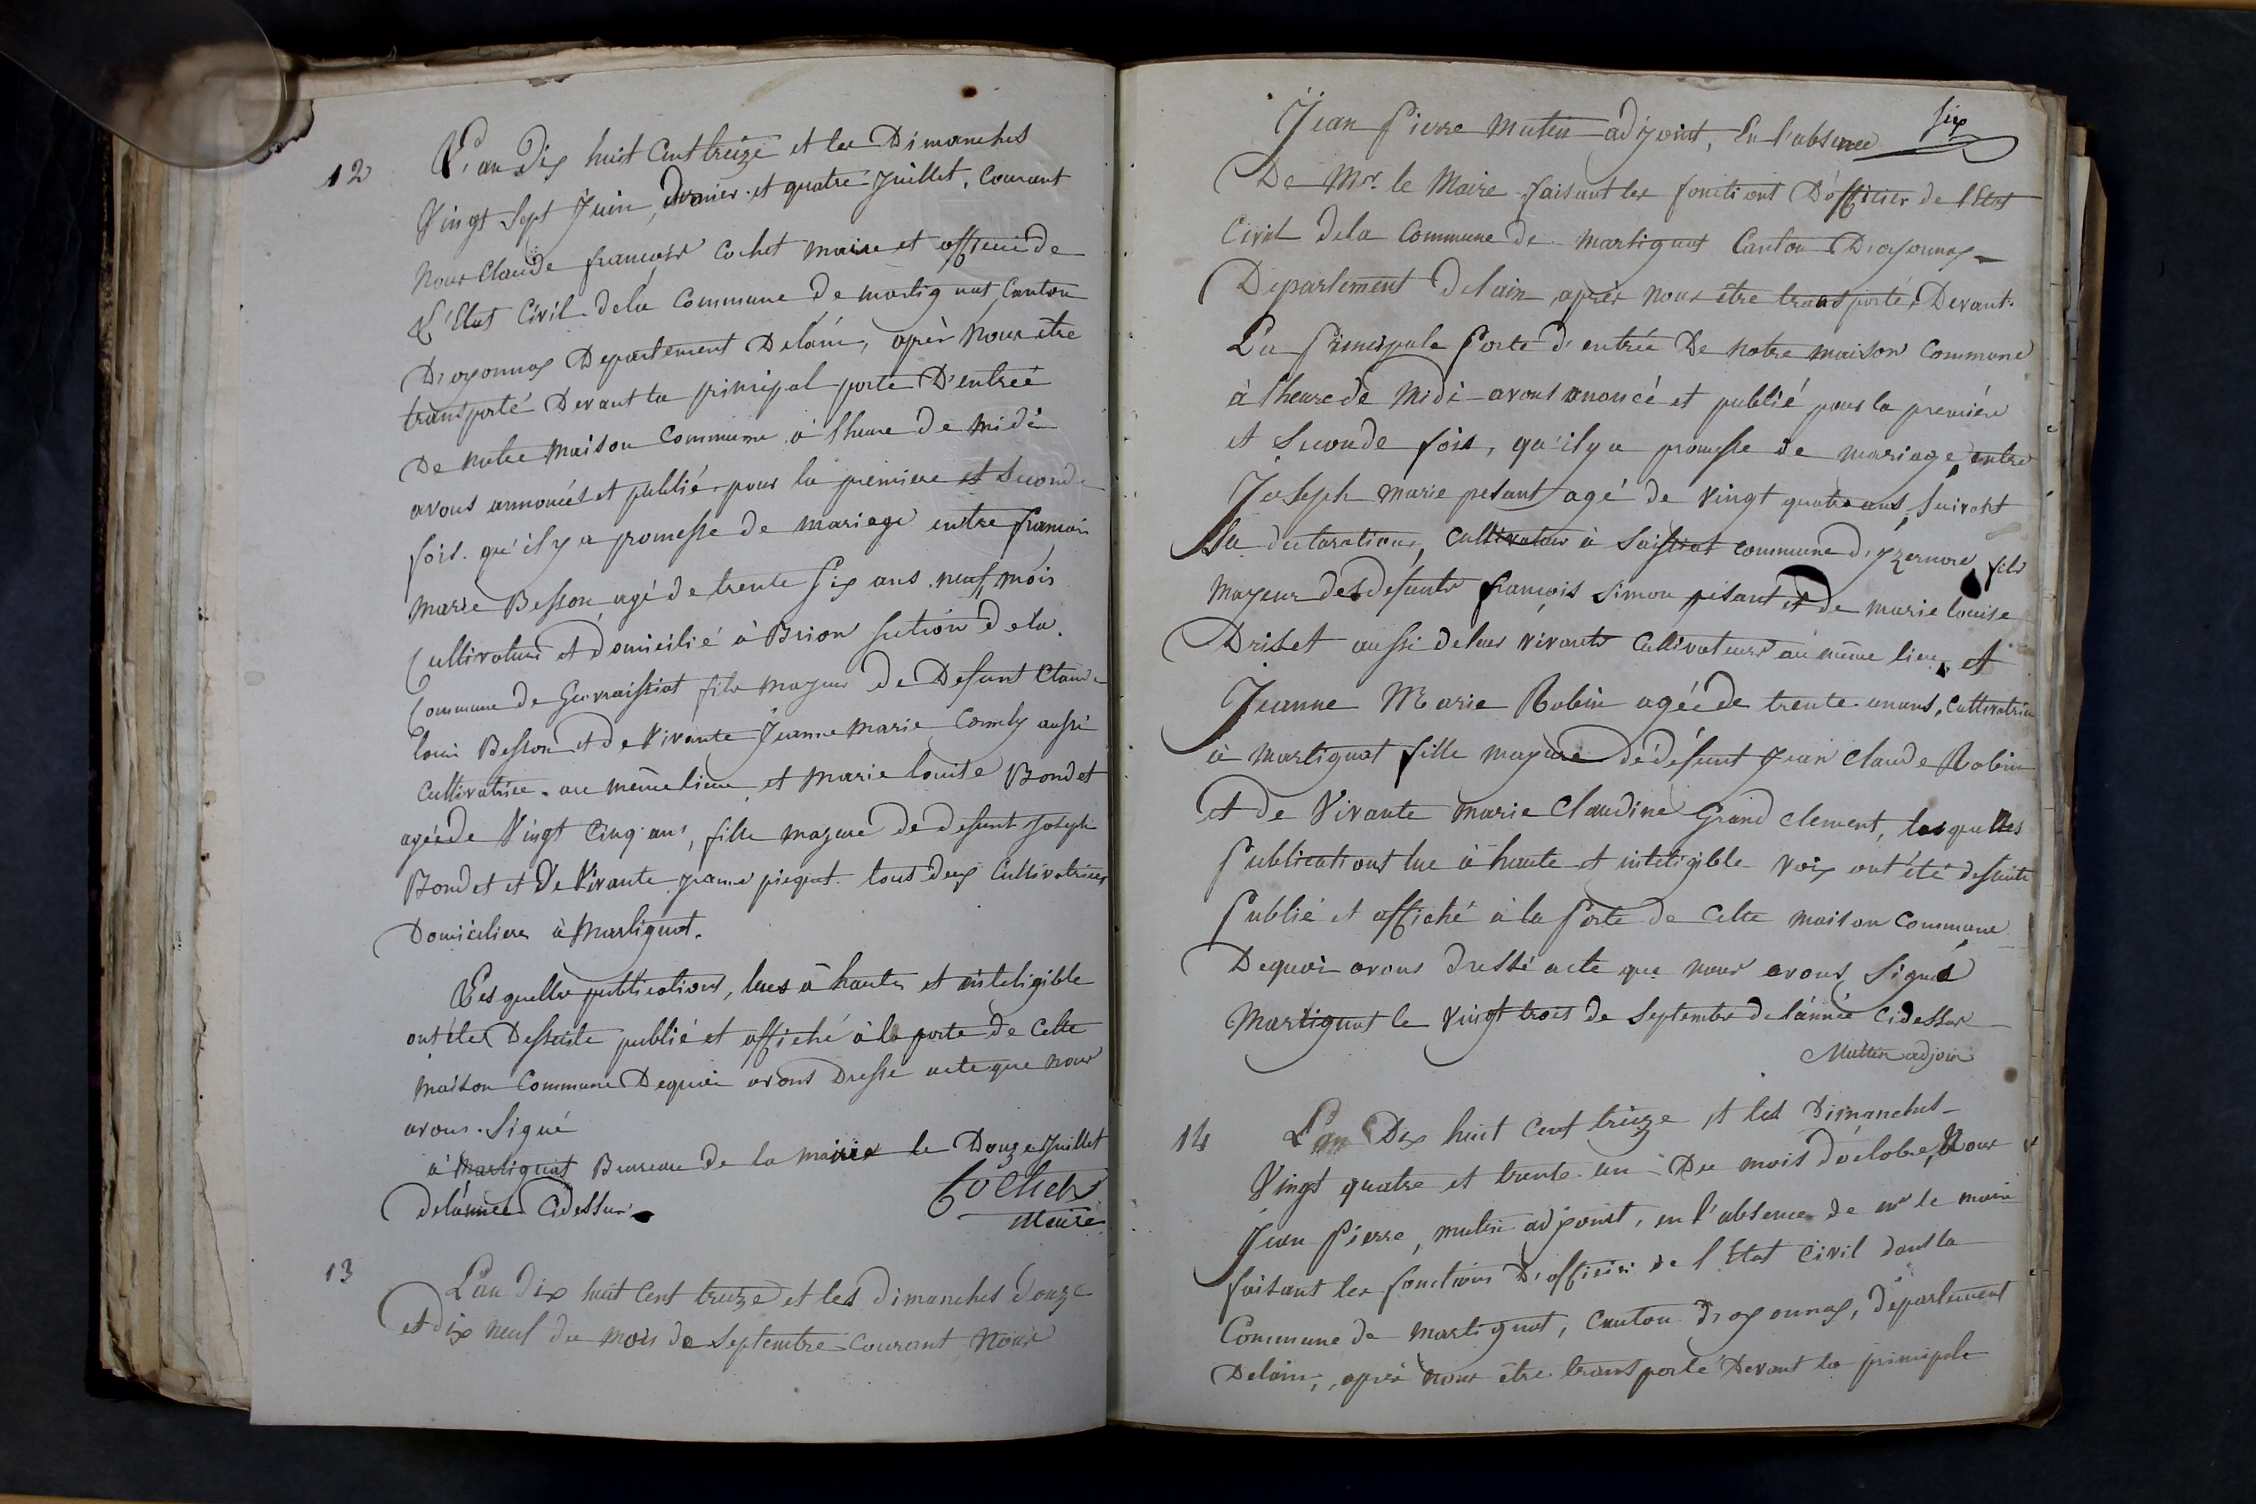 12
L'an Dix huit Cent treize et les Dimanches
Vingt Sept Juin, dernier et quatre Juillet, Courant
Nous Claude françois Cochet maire et officier de
L'Etat Civil dela Commune de martignat, Canton
D'oyonnax Departement Delain, après Nous être
transporté Devant la principal porte D'entrée
De notre maison Commune à lheure de midi
avons annoncés et publié pour la premiere et Seconde
fois. qu'il y a promesse de mariage entre françois
marie Besson agé de trente Six ans neuf mois
Cultivateur et domicilié à Brion section dela
Commune de Geovraissiat fils mageur de Defunt Claude
louis Besson et de Vivante Jeanne marie Comly aussi
Cultivatrice au même lieu et marie louise Bondet
agée de Vingt Cinq ans, fille mageure de defunt Joseph
Bondet et De Vivante jeanne piequet tous deux Cultivatrices
Domiciliers à Martignat.
Les quelles publications, lues à hautes et inteligible
ont étée Dessuite publié et affiché à la porte de Cette
maison Commune Dequoi avons Dressé acte que nous
avons Signé
à Martignat Bureau de la mairie le Douze Juillet
delannée Cidessus
Cochet
Maire
13
L'an Dix huit Cent treize et les dimanches douze
et dix neuf du mois de Septembre Courant Nous
six
Jean Pierre Mutin adjoint, En l'absence
De Mr. le Maire faisant les fonctions D'officier de l'Etat
Civil dela Commune de martignat Canton D'oyonnax
Departement delain après Nous être transportés Devant
La Principale Porte d'entrée De notre maison Commune
à l'heure de Midi avons anoncé et publié pour la première
et Seconde fois, qu'il y a promesse de mariage entre
Joseph marie pesant agé de vingt quatre ans, Suivant
Sa declaration, Cultivateur à Saissiat commune d'yzernore fils
mageur des defunts françois Simon pesant et de marie louise
Driset aussi deleur vivants Cultivateurs au même lieu, et
Jeanne Marie Robin agée de trente un ans, Cultivatrice
à martignat fille mageure de défunt Jean Claude Robin
et de Vivante marie Claudine Grand clement, lesquelles
Publications lue à haute et inteligible voix ont été dessuite
Publié et affiché à la Porte de Cette maison Commune
Dequoi avons dressé acte que nous avons Signé
Martignat le vingt trois de Septembre de l'année Cidessus
Mutin adjoin
14
L'an Dix huit Cent treize et les Dimanches
Vingt quatre et trente un Du mois d'octobre, Nous
Jean Pierre, mutin adjoint, en l'absence de mr le maire
faisant les fonctions D'officier de l'Etat Civil dans la
Commune de martignat, Canton d'oyonnax, département
Delain, après nous être transporté Devant la principale